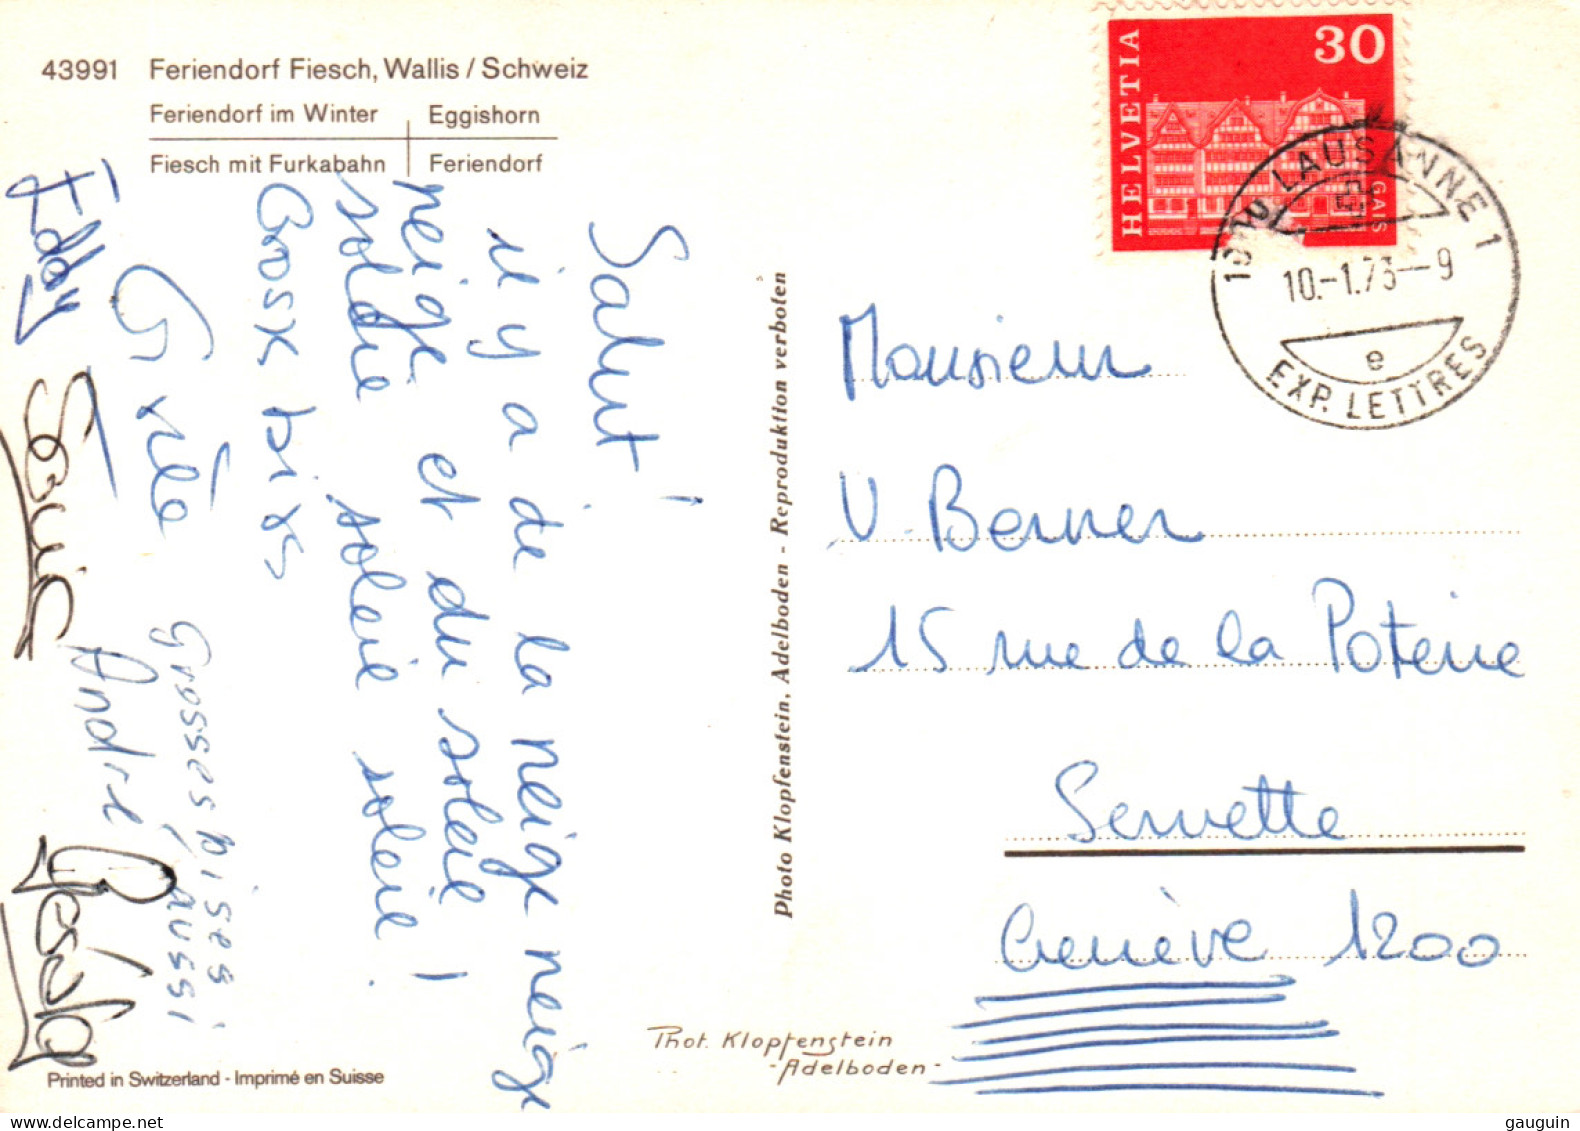 43991 Feriendorf Fiesch, Wallis / Schweiz
Feriendorf im Winter Eggishorn
Fiesch mit Furkabahn Feriendorf
HELVETIA
30
GAIS
LAUSANNE 1
10.-1.73--9
e
EXP. LETTRES
Salut!
il y a de la neige neige
neige et du soleil!
soleil soleil soleil
Gross bises
Eddy
Grosses bises
aussi
André
Photo Klopfenstein, Adelboden - Reproduktion verboten
Monsieur
V. Berner
15 rue de la Poterie
Servette
Genève 1200
Phot. Klopfenstein
-Adelboden-
Printed in Switzerland - Imprimé en Suisse
gauguin